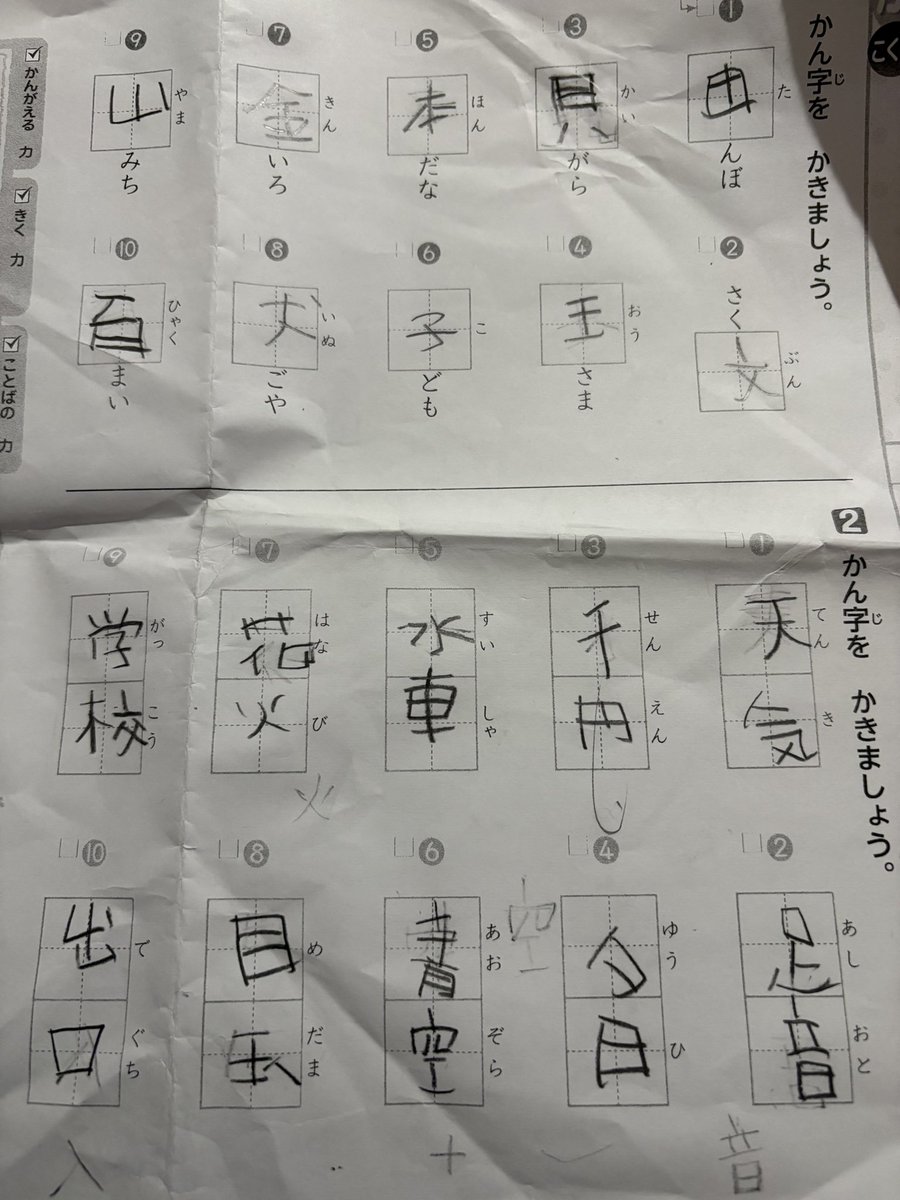 こく
かん字を かきましょう。
じ
❶ 田んぼ
た
❷ さく文
ぶん
❸ 貝がら
かい
❹ 王さま
おう
❺ 本だな
ほん
❻ 子ども
こ
❼ 金いろ
きん
❽ 犬ごや
いぬ
❾ 山みち
やま
❿ 百まい
ひゃく
かんがえる 力
きく 力
ことばの 力
2 かん字を かきましょう。
じ
❶ 天気
てんき
❷ 足音
あしおと
❸ 千円
せんえん
❹ 夕日
ゆうひ
❺ 水車
すいしゃ
❻ 青空
あおぞら
❼ 花火
はなび
❽ 目玉
めだま
❾ 学校
がっこう
❿ 出口
でぐち
火
空
音
十
入